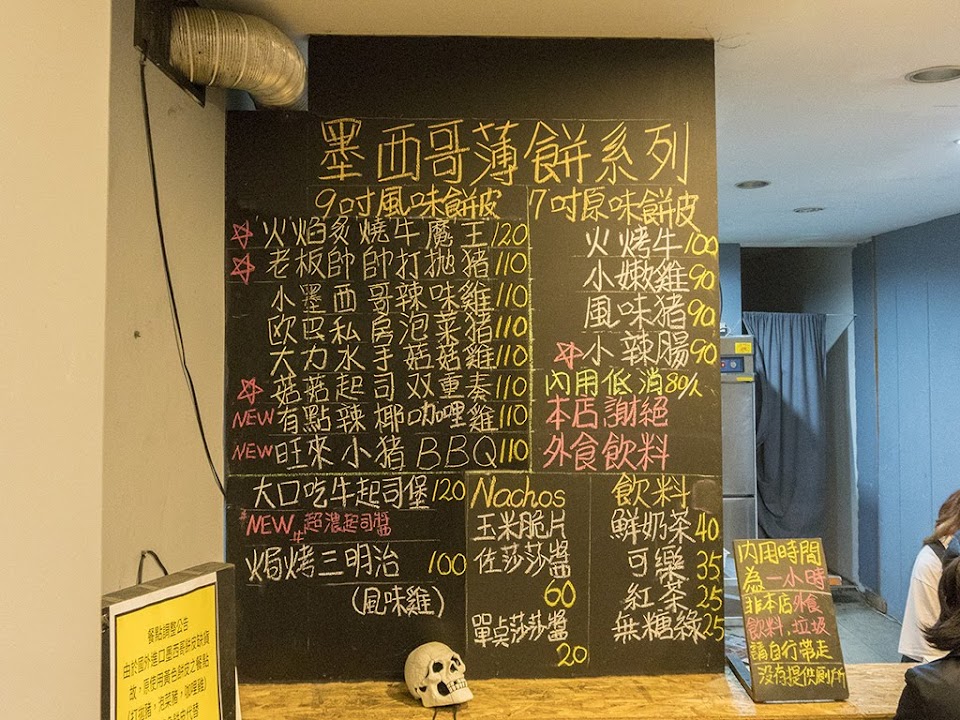 墨西哥薄餅系列
9吋風味餅皮
火焰炙燒牛魔王 120
老板帥帥打拋豬 110
小墨西哥辣味雞 110
欧巴私房泡菜豬 110
大力水手菇菇雞 110
菇菇起司双重奏 110
NEW 有點辣椰咖哩雞 110
NEW 旺來小豬BBQ 110
7吋原味餅皮
火烤牛 100
小嫩雞 90
風味豬 90
小辣腸 90
內用低消80/人
本店謝絕
外食飲料
大口吃牛起司堡 120
NEW 超濃起司醬
焗烤三明治 100
(風味雞)
Nachos
玉米脆片
佐莎莎醬
60
單點莎莎醬
20
飲料
鮮奶茶 40
可樂 35
紅茶 25
無糖綠 25
內用時間
為一小時
非本店外食
飲料,垃圾
請自行帶走
沒有提供廁所
餐點調整公告
由於國外進口墨西哥餅皮缺貨
故,原使用黃色餅皮之餐點
(打拋豬,泡菜豬,咖哩雞)